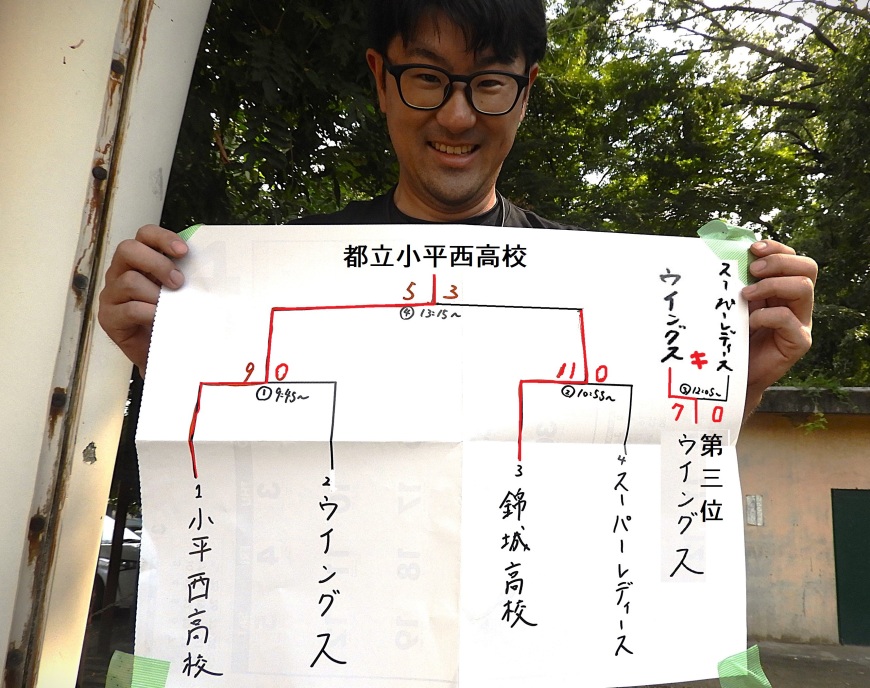 都立小平西高校
5 3
④ 13:15～
9 0
① 9:45～
11 0
② 10:55～
1 小平西高校
2 ウイングス
3 錦城高校
4 スーパーレディース
ウイングス
スーパーレディース
キ
③ 12:05～
7 0
第三位
ウイングス